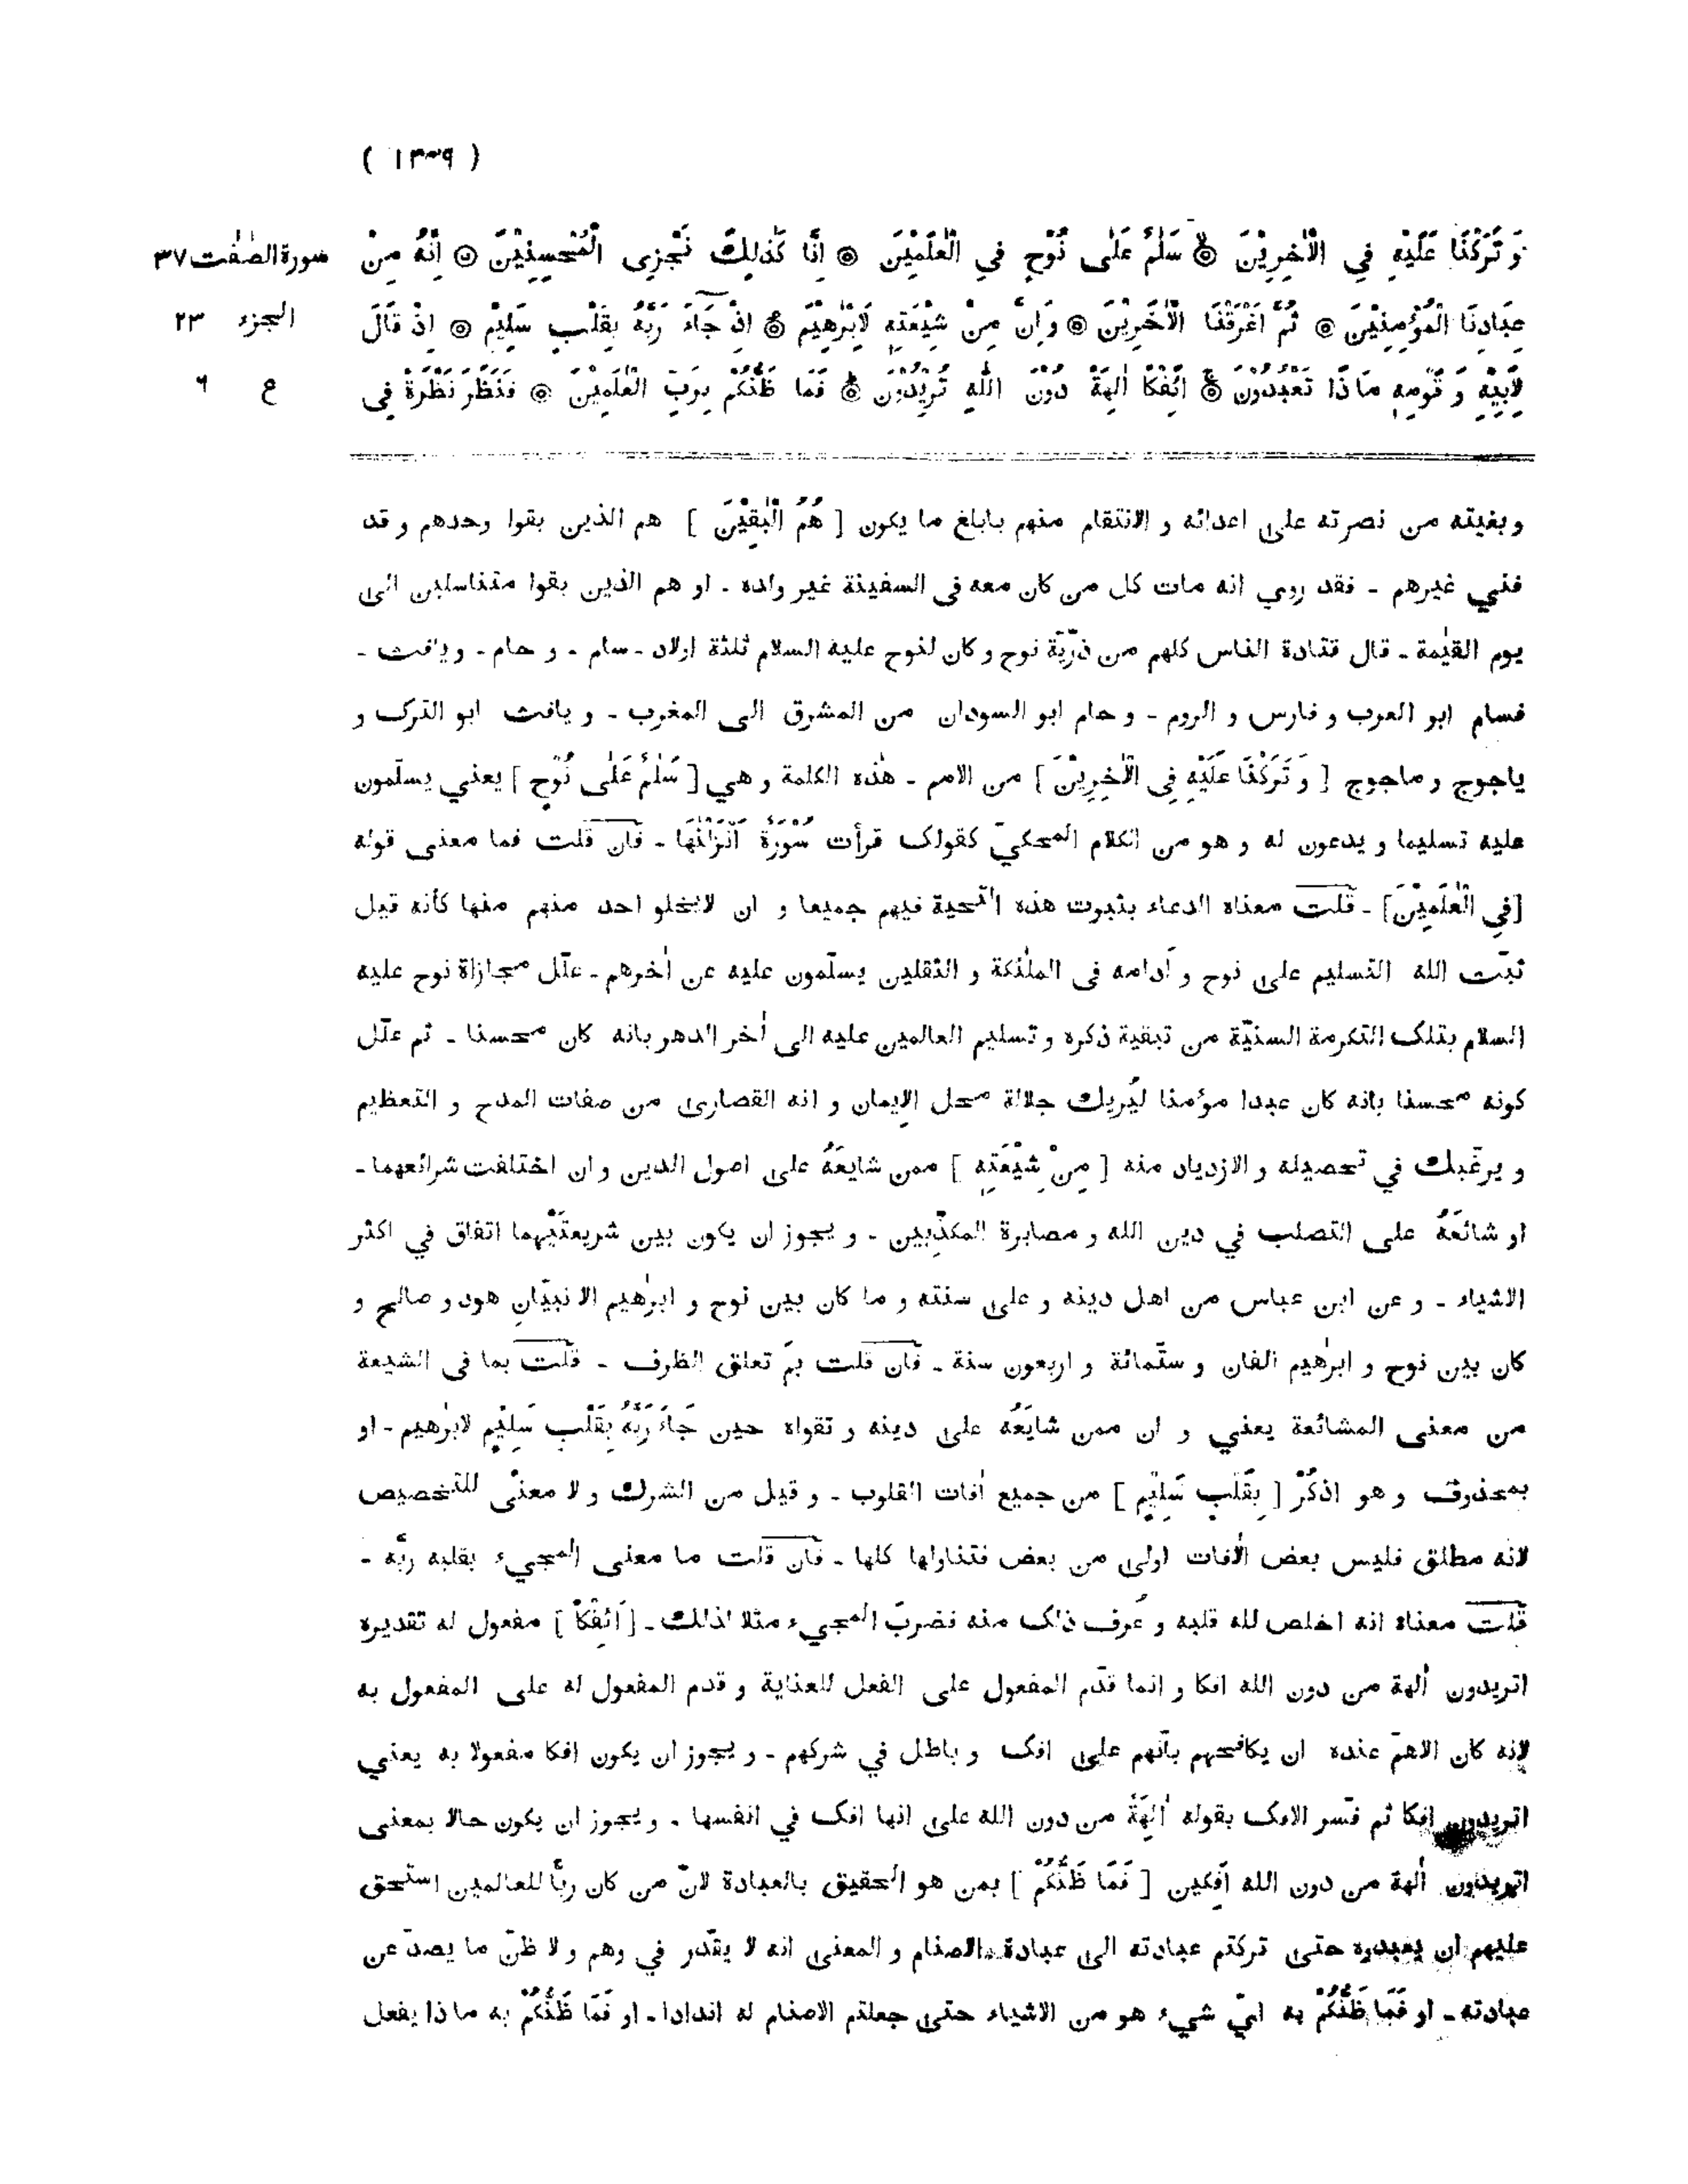 ( ١٢٣٩ )
وَ تَرَكْنَا عَلَيْهِ فِي الْاٰخِرِيْنَ ۞ سَلٰمٌ عَلٰى نُوْحٍ فِي الْعٰلَمِيْنَ ۞ اِنَّا كَذٰلِكَ نَجْزِى الْمُحْسِنِيْنَ ۞ اِنَّهُ مِنْ
سورة الصّٰفّٰت ٣٧
عِبَادِنَا الْمُؤْمِنِيْنَ ۞ ثُمَّ اَغْرَقْنَا الْاٰخَرِيْنَ ۞ وَاِنَّ مِنْ شِيْعَتِهٖ لَاِبْرٰهِيْمَ ۞ اِذْ جَآءَ رَبَّهُ بِقَلْبٍ سَلِيْمٍ ۞ اِذْ قَالَ
الجزء ٢٣
لِاَبِيْهِ وَ قَوْمِهٖ مَاذَا تَعْبُدُوْنَ ۞ اَئِفْكًا اٰلِهَةً دُوْنَ اللّٰهِ تُرِيْدُوْنَ ۞ فَمَا ظَنُّكُمْ بِرَبِّ الْعٰلَمِيْنَ ۞ فَنَظَرَ نَظْرَةً فِى
ع ٦
وبغيته من نصرته على اعدائه و الانتقام منهم بابلغ ما يكون [ هُمُ الْبٰقِيْنَ ] هم الذين بقوا وحدهم و قد
فني غيرهم - فقد روي انه مات كل من كان معه فى السفينة غير ولده - او هم الذين بقوا متناسلين الى
يوم القيٰمة - قال قتادة الناس كلهم من ذرّيّة نوح و كان لنوح عليه السلام ثلثة اولاد - سام - و حام - و يافث -
فسام ابو العرب و فارس و الروم - و حام ابو السودان من المشرق الى المغرب - و يافث ابو الترك و
ياجوج و ماجوج [ وَ تَرَكْنَا عَلَيْهِ فِى الْاٰخِرِيْنَ ] من الامم - هٰذه الكلمة و هي [ سَلٰمٌ عَلٰى نُوْحٍ ] يعني يسلّمون
عليه تسليما و يدعون له و هو من الكلام المحكيّ كقولك قرأت سُوْرَةٌ اَنْزَلْنٰهَا - فان قلت فما معنى قوله
[فِي الْعٰلَمِيْنَ] - قلت معناه الدعاء بثبوت هذه التحية فيهم جميعا و ان لايخلو احد منهم منها كأنه قيل
ثبّت الله التسليم على نوح و اَدامه فى الملٰئكة و الثقلين يسلّمون عليه عن اٰخرهم - علّل مجازاة نوح عليه
السلام بتلك التكرمة السنيّة من تبقية ذكره و تسليم العالمين عليه الى اٰخر الدهر بانه كان محسنا - ثم علّل
كونه محسنا بانه كان عبدا مؤمنا ليُريك جلالة محل الايمان و انه القصارى من صفات المدح و التعظيم
و يرغّبك في تحصيله و الازدياد منه [ مِنْ شِيْعَتِهٖ ] ممن شايعَهُ على اصول الدين و ان اختلفت شرائعهما -
او شائعَهُ على التصلب في دين الله و مصابرة المكذّبين - و يجوز ان يكون بين شريعتَيْهما اتفاق في اكثر
الاشياء - و عن ابن عباس من اهل دينه و على سنته و ما كان بين نوح و ابرٰهيم الا نبيّانِ هود و صالح و
كان بين نوح و ابرٰهيم الفان و ستّمائة و اربعون سنة - فان قلت بمَ تعلق الظرف - قلت بما فى الشيعة
من معنى المشائعة يعني و ان ممن شايَعَهُ على دينه و تقواه حين جَآءَ رَبَّهُ بِقَلْبٍ سَلِيْمٍ لابرٰهيم - او
بمحذوف و هو اذكُرْ [ بِقَلْبٍ سَلِيْمٍ ] من جميع اٰفات القلوب - و قيل من الشرك و لا معنًى للتخصيص
لانه مطلق فليس بعض الاٰفات اولى من بعض فتناولها كلها - فان قلت ما معنى المجيء بقلبه ربّه -
قلت معناه انه اخلص لله قلبه و عُرف ذلك منه فضربَ المجيء مثلا لذلك - [ اَئِفْكًا ] مفعول له تقديره
اتريدون اٰلهة من دون الله افكا و انما قدّم المفعول على الفعل للعناية و قدم المفعول له على المفعول به
لانه كان الاهمّ عنده ان يكافحهم بانّهم على افك و باطل في شركهم - و يجوز ان يكون افكا مفعولا به يعني
اتريدون افكا ثم فسّر الافك بقوله اٰلِهَةً من دون الله على انها افك في انفسها - و يجوز ان يكون حالا بمعنى
اتريدون اٰلهة من دون الله اٰفكين [ فَمَا ظَنُّكُمْ ] بمن هو الحقيق بالعبادة لانّ من كان ربًّا للعالمين استحق
عليهم ان يعبدوه حتى تركتم عبادته الى عبادة الاصنام و المعنى انه لا يقدّر في وهم و لا ظنّ ما يصدّ عن
عبادته - او فَمَا ظَنُّكُمْ به ايّ شيء هو من الاشياء حتى جعلتم الاصنام له اندادا - او فَمَا ظَنُّكُمْ به ماذا يفعل